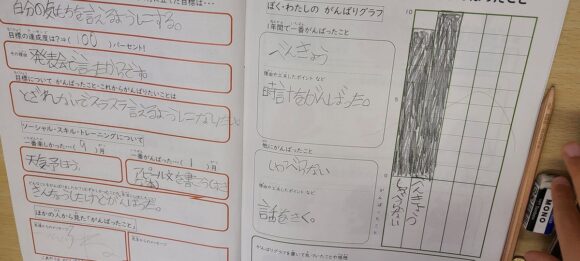 自分の気もちを言えるようにする。
目標の達成度は?⇒(100)パーセント!
その理由
発表会で言ったからです。
目標について がんばったこと・これからがんばりたいことは
とぎれないでスラスラ言えるようになりたいこと
ソーシャル・スキル・トレーニングについて
一番楽しかった…(9)月
天気予ほう
一番がんばった…(1)月
アピール文を書こう
ほかの人から見た「がんばったこと」
ぼく・わたしの がんばりグラフ
1年間で一番がんばったこと
べんきょう
理由や工夫したポイント など
時計をがんばった。
他にがんばったこと
しゃべらない
理由や工夫したポイント など
話をきく。
がんばりグラフを書いて気づいたことや感想
10
5
0
がんばったこと
べんきょう
しゃべらない
MONO